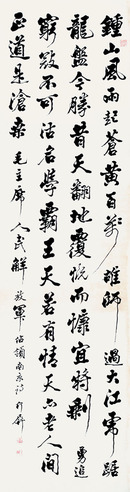 鍾山風雨起蒼黄百萬雄師過大江虎踞
龍盤今勝昔天翻地覆慨而慷宜將剩勇追
窮寇不可沽名學霸王天若有情天亦老人間
正道是滄桑 毛主席 人民解放軍佔領南京詩